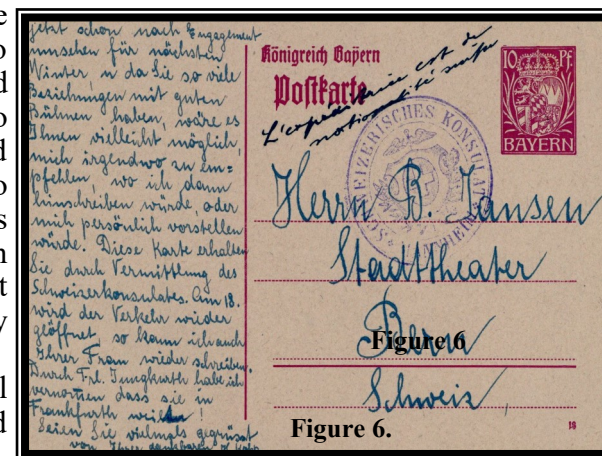 jetzt schon nach Engagement
umsehen für nächsten
Winter u da Sie so viele
Beziehungen mit guten
Bühnen haben, wäre es
Ihnen vielleicht möglich,
mich irgendwo zu em=
pfehlen, wo ich dann
hinschreiben würde, oder
mich persönlich vorstellen
würde. Diese Karte erhalten
Sie durch Vermittlung des
Schweizerkonsulates. Am 18.
wird der Verkehr wieder
geöffnet, so kann ich auch
Ihrer Frau wieder schreiben.
Durch Frl. Jungkurth habe ich
vernommen dass sie in
Frankfurth
Seien Sie vielmals gegrüsst
von Ihrer dankbaren
Königreich Bayern
Postkarte
L'expéditrice est de
nationalité suisse
SCHWEIZERISCHES KONSULAT
MANNHEIM
10 Pf
BAYERN
Herrn B. Jansen
Stadttheater
Bern
Schweiz
18
Figure 6
Figure 6.